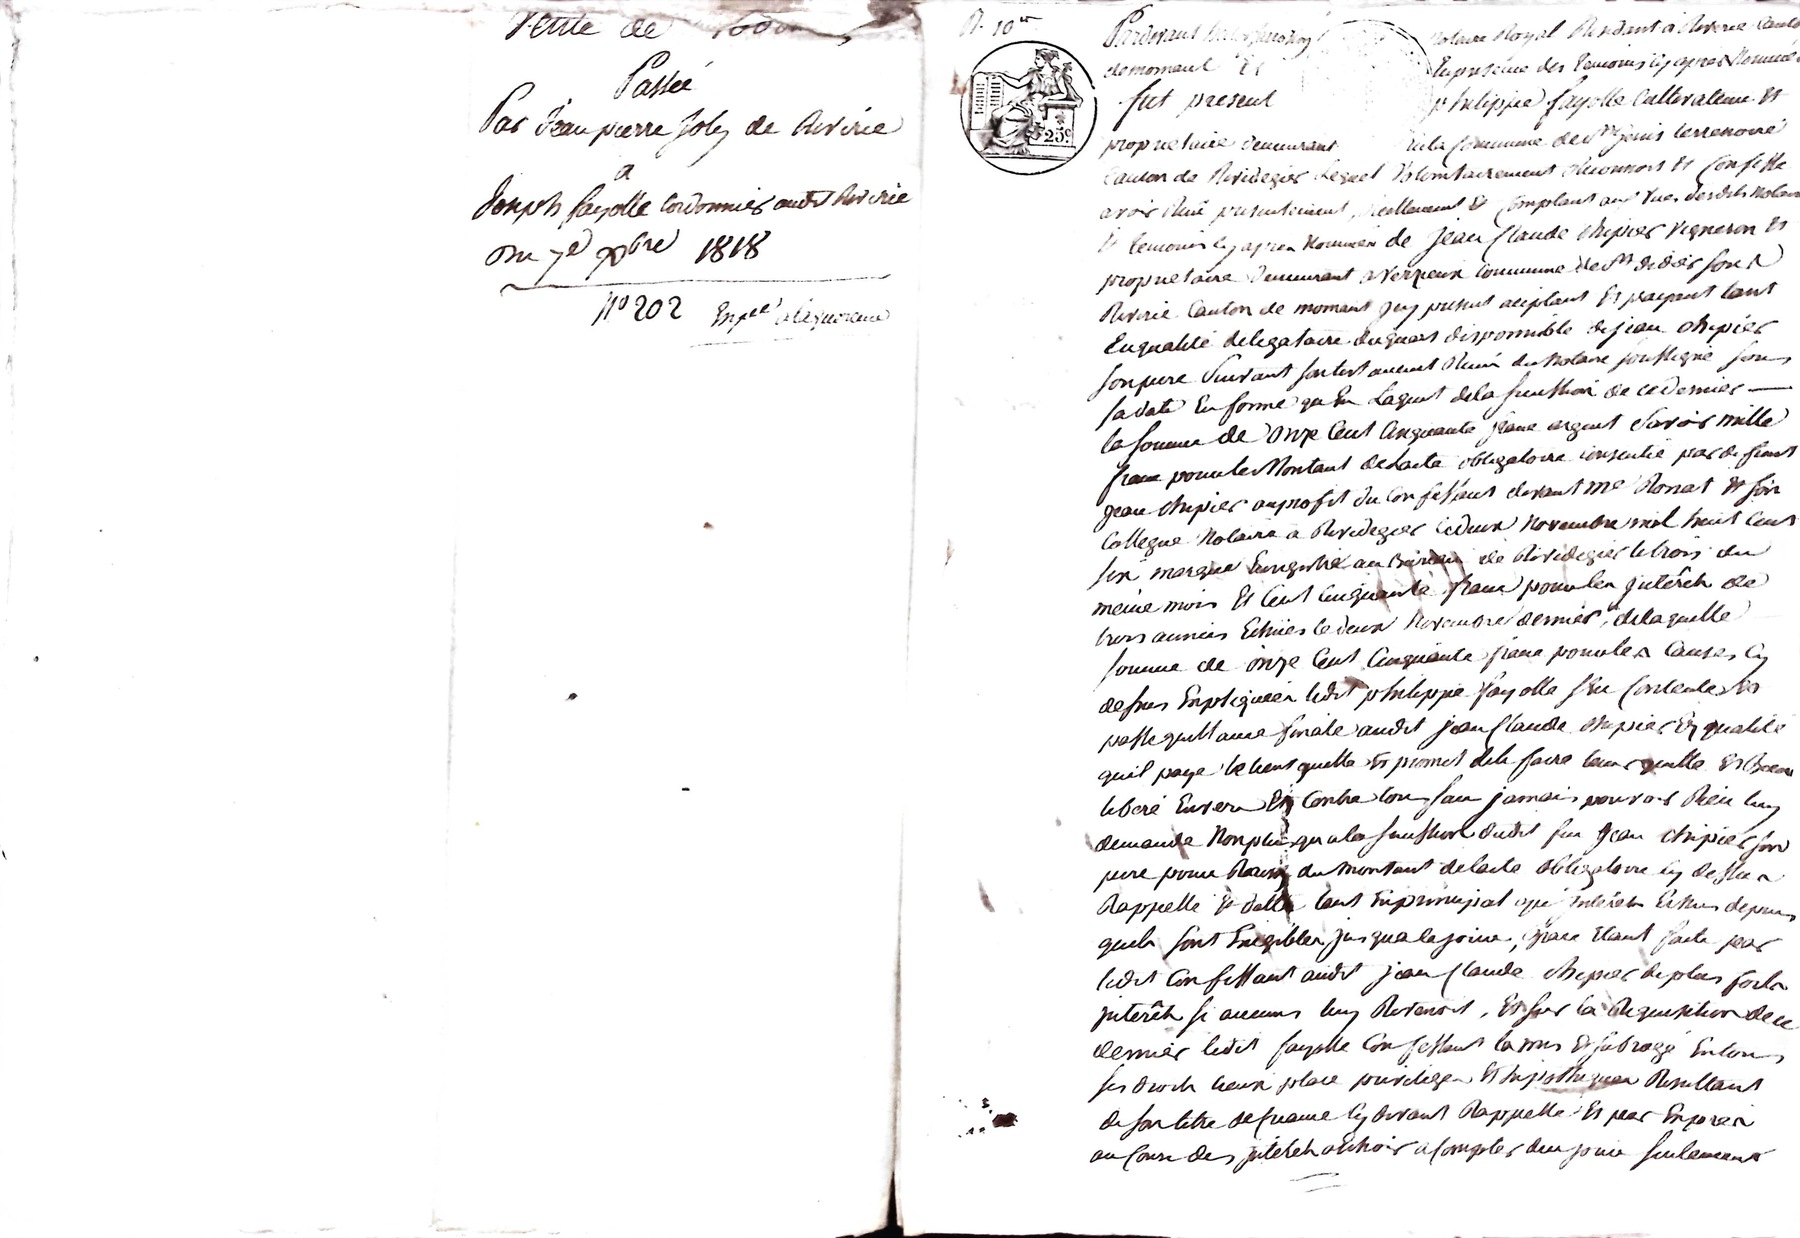 Vente de
Passée
Par Jean pierre Joly de Riverie
a
Joseph fayolle Cordonnier audit Riverie
Du 7e Xbre 1818
No 202 Expée a laquereur
R. 10re
25c
Pardevant notaire Royal Residant a Riverie Canton
demornant Et En presence des temoins cy apres Nommés
fut present philippe fayolle Cultivateur Et
proprietaire demeurant en la Commune de St Genis terrenoire
Canton de Rivedegier Lequel Volontairement Reconnoit Et Confesse
avoir Reçu presentement, Reellement Et Comptant aux Vues desdits Notaire
Et temoins cy apres Nommés de Jean Claude chipier Vigneron Et
proprietaire demeurant a Verpeux Commune de St didier sous
Riverie Canton de mornant icy present aceptant Et payant tant
En qualité delegataire du quart disponnible de jean chipier
son pere Suivant son testament Reçu du Notaire soussigné sous
sa date En forme qu En Laquit de la sucession de ce dernier
la somme de onze Cent Cinquante franc argent Savoir mille
franc pour le Montant de lacte obligatoire consentie par defunt
jean chipier au profit du Confessant devant me Ronat Et son
Collegue Notaire a Rivedegier le deux Novembre mil huit Cent
six marque Enregistré au Bureau de Rivedegier le trois du
meme mois Et Cent Cinquante franc pour les jnterêts de
trois années Echües le deux Novembre dernier, de laquelle
somme de onze Cent Cinquante franc pour les Causes cy
dessus Expliquées ledit philippe fayolle s'en Contente Et
passe quittance finale audit jean Claude chipier Es qualité
quil paye le tient quitte Et promet de le faire tenir quitte Et
liberé Envers Et Contre tous sans jamais pouvoir Rien luy
demander Nonplus qu a la sucession dudit feu jean chipier son
pere pour Raison du montant de lacte obligatoire cy dessus
Rappelle Et datté tant En principal que jnterêts Echus depuis
quels sont Exigibles jusqu a ce jour, Grace Etant faite par
ledit Confessant audit jean Claude chipier de plus forts
jnterêts si aucuns luy Revenoit, Et sur la Requisition de ce
dernier ledit fayolle Confessant la mis Et subrogé En tous
ses droits lieux place privileges Et hipotheques Resultant
de son titre de Creance cy devant Rappelle Et par Exprés
au Cours des jnterêts a Echoir a Compter de ce jour seulement